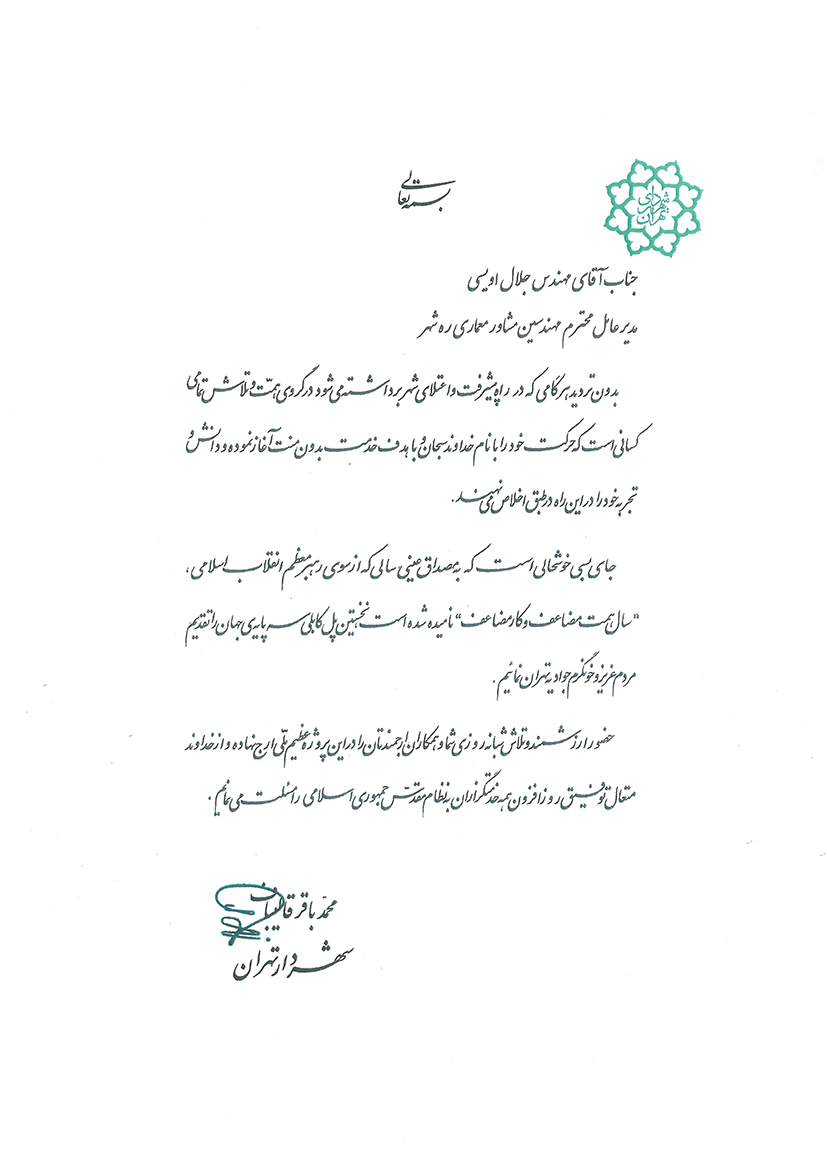 بسمه تعالی
شهرداری تهران
جناب آقای مهندس جلال اویسی
مدیر عامل محترم مهندسین مشاور معماری ره شهر
بدون تردید هر گامی که در راه پیشرفت و اعتلای شهر برداشته می شود در گروی همّت و تلاش تمامی
کسانی است که حرکت خود را با نام خداوند سبحان و با هدف خدمت بدون منت آغاز نموده و دانش و
تجربه خود را در این راه در طبق اخلاص می نهند.
جای بسی خوشحالی است که به مصداق عینی سالی که از سوی رهبر معظم انقلاب اسلامی،
"سال همت مضاعف و کار مضاعف" نامیده شده است نخستین پل کابلی سه پایه ی جهان را تقدیم
مردم عزیز و خونگرم جوادیه تهران نمائیم.
حضور ارزشمند و تلاش شبانه روزی شما و همکاران ارجمندتان را در این پروژه عظیم ملّی ارج نهاده و از خداوند
متعال توفیق روز افزون همه خدمتگزاران به نظام مقدّس جمهوری اسلامی را مسئلت می نمائیم.
محمّد باقر قالیباف
شهردار تهران